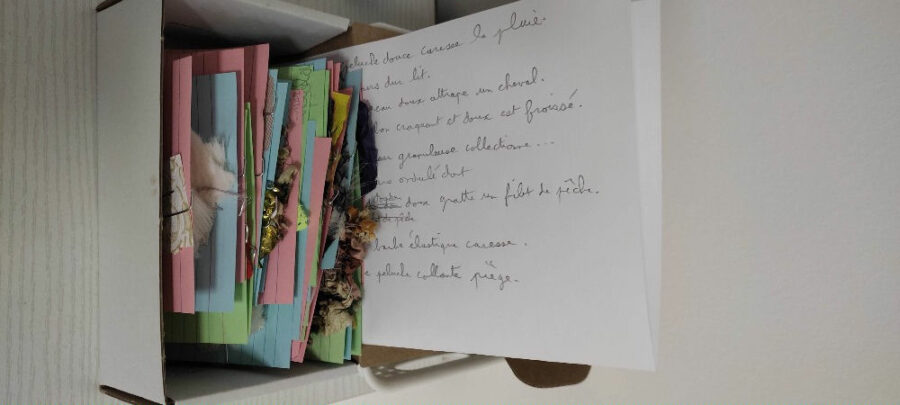 peluche douce caresse la pluie.
ours dur lit.
eau doux attrape un cheval.
bon craquant et doux est froissé.
granuleuse collectionne ...
ondulé dort
doux gratte un filet de pêche.
de pêche
barbe élastique caresse.
peluche collante piège.